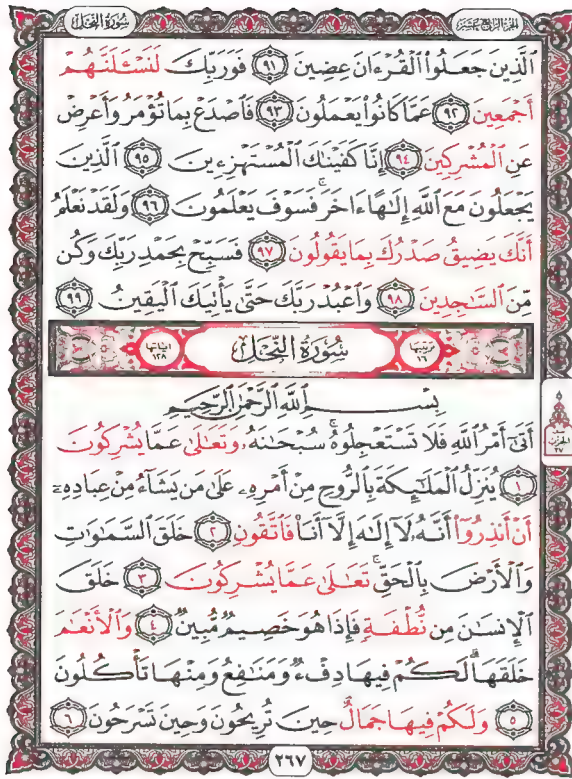 الجزء الرابع عشر
سورة النحل
ٱلَّذِينَ جَعَلُوا۟ ٱلْقُرْءَانَ عِضِينَ ٩١ فَوَرَبِّكَ لَنَسْـَٔلَنَّهُمْ
أَجْمَعِينَ ٩٢ عَمَّا كَانُوا۟ يَعْمَلُونَ ٩٣ فَٱصْدَعْ بِمَا تُؤْمَرُ وَأَعْرِضْ
عَنِ ٱلْمُشْرِكِينَ ٩٤ إِنَّا كَفَيْنَٰكَ ٱلْمُسْتَهْزِءِينَ ٩٥ ٱلَّذِينَ
يَجْعَلُونَ مَعَ ٱللَّهِ إِلَٰهًا ءَاخَرَ ۚ فَسَوْفَ يَعْلَمُونَ ٩٦ وَلَقَدْ نَعْلَمُ
أَنَّكَ يَضِيقُ صَدْرُكَ بِمَا يَقُولُونَ ٩٧ فَسَبِّحْ بِحَمْدِ رَبِّكَ وَكُن
مِّنَ ٱلسَّٰجِدِينَ ٩٨ وَٱعْبُدْ رَبَّكَ حَتَّىٰ يَأْتِيَكَ ٱلْيَقِينُ ٩٩
ترتيبها ١٦
سُورَةُ النَّحْلِ
آياتها ١٢٨
بِسْمِ ٱللَّهِ ٱلرَّحْمَٰنِ ٱلرَّحِيمِ
أَتَىٰٓ أَمْرُ ٱللَّهِ فَلَا تَسْتَعْجِلُوهُ ۚ سُبْحَٰنَهُۥ وَتَعَٰلَىٰ عَمَّا يُشْرِكُونَ
١ يُنَزِّلُ ٱلْمَلَٰٓئِكَةَ بِٱلرُّوحِ مِنْ أَمْرِهِۦ عَلَىٰ مَن يَشَآءُ مِنْ عِبَادِهِۦٓ
أَنْ أَنذِرُوٓا۟ أَنَّهُۥ لَآ إِلَٰهَ إِلَّآ أَنَا۠ فَٱتَّقُونِ ٢ خَلَقَ ٱلسَّمَٰوَٰتِ
وَٱلْأَرْضَ بِٱلْحَقِّ ۚ تَعَٰلَىٰ عَمَّا يُشْرِكُونَ ٣ خَلَقَ
ٱلْإِنسَٰنَ مِن نُّطْفَةٍ فَإِذَا هُوَ خَصِيمٌ مُّبِينٌ ٤ وَٱلْأَنْعَٰمَ
خَلَقَهَا ۗ لَكُمْ فِيهَا دِفْءٌ وَمَنَٰفِعُ وَمِنْهَا تَأْكُلُونَ
٥ وَلَكُمْ فِيهَا جَمَالٌ حِينَ تُرِيحُونَ وَحِينَ تَسْرَحُونَ ٦
الحزب
٢٧
٢٦٧